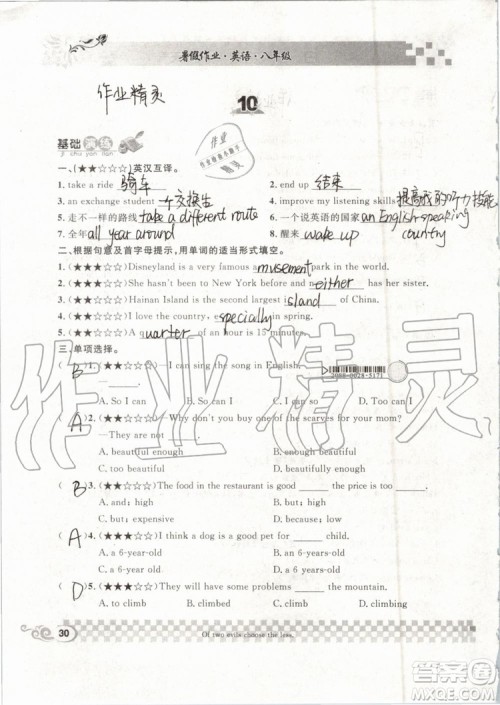 暑假作业·英语·八年级
作业精灵
10
基础演练
ji chu yan lian
一、(★★☆☆☆)英汉互译。
1. take a ride 骑车 2. end up 结束
3. an exchange student 一个交换生 4. improve my listening skills 提高我的听力技能
5. 走不一样的路线 take a different route 6. 一个说英语的国家 an English-speaking country
7. 全年 all year around 8. 醒来 wake up
二、根据句意及首字母提示,用单词的适当形式填空。
1. (★★☆☆☆)Disneyland is a very famous amusement park in the world.
2. (★★☆☆☆)She hasn't been to New York before and neither has her sister.
3. (★★☆☆☆)Hainan Island is the second largest island of China.
4. (★★☆☆☆)I love the country, especially in spring.
5. (★★☆☆☆)A quarter of an hour is 15 minutes.
三、单项选择。
( B )1. (★★☆☆☆)—I can sing the song in English.
—
A. So I can B. So can I C. Can so I D. Too can I
( A )2. (★★☆☆☆)—Why don't you buy one of the scarves for your mom?
—They are not ______.
A. beautiful enough B. enough beautiful
C. too beautiful D. beautiful too
( B )3. (★★★☆☆)The food in the restaurant is good ______ the price is too ______.
A. and; high B. but; high
C. but; expensive D. because; low
( A )4. (★★★☆☆)I think a dog is a good pet for ______ child.
A. a 6-year-old B. an 6-year-old
C. a 6-years-old D. an 6-years-old
( D )5. (★★★☆☆)They will have some problems ______ the mountain.
A. to climb B. climbed C. climb D. climbing
30
Of two evils choose the less.
作业精灵
答案圈
MXQE.COM